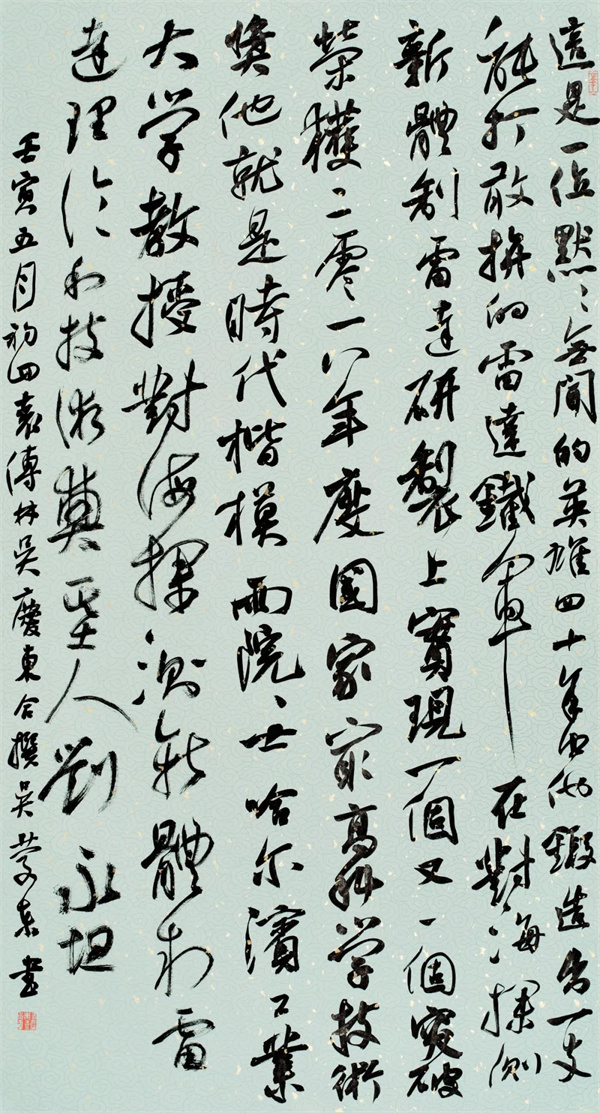 這是一位默默無聞的英雄四十年中他鍛造出一支
能打敢拚的雷達鐵軍在對海探測
新體制雷達研製上實現一個又一個突破
榮獲二零一八年度國家最高科学技術
獎他就是時代楷模兩院院士哈尔濱工業
大学教授對海探測新體制雷
達理论和技術奠基人劉永坦
壬寅五月初四袁傳林吳慶東合撰吳慶東書